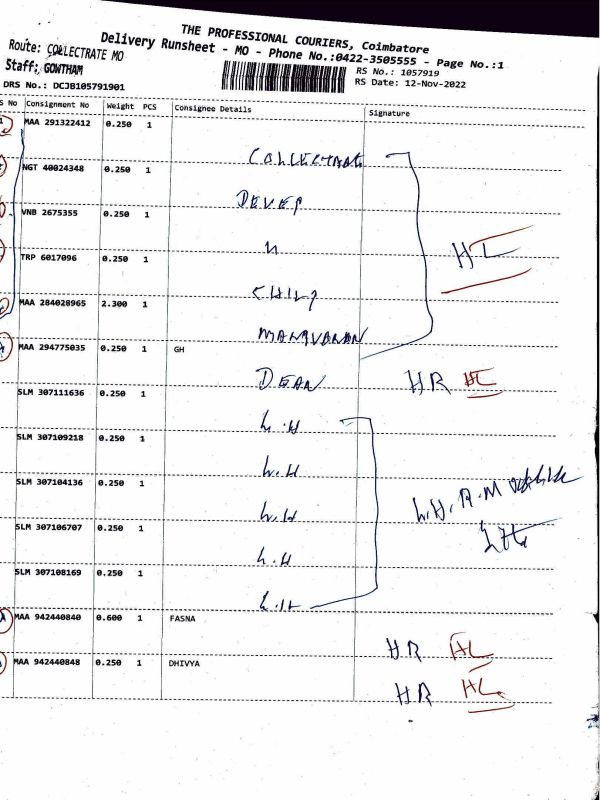 THE PROFESSIONAL COURIERS, Coimbatore
Delivery Runsheet - MO - Phone No.:0422-3505555 - Page No.:1
Route: COLLECTRATE MO
Staff: GOWTHAM
RS No.: 1057919
DRS No.: DCJB105791901
RS Date: 12-Nov-2022
S No Consignment No Weight PCS Consignee Details Signature
MAA 291322412 0.250 1
COLLECTRATE
NGT 40024348 0.250 1
DEVEP
VNB 2675355 0.250 1
"
HL
TRP 6017096 0.250 1
MAA 284028965 2.300 1
MANIVANAN
MAA 294775035 0.250 1 GH
DEAN HR HL
SLM 307111636 0.250 1
L.H
SLM 307109218 0.250 1
L.H
SLM 307104136 0.250 1
L.H L.H. A.M
SLM 307106707 0.250 1
L.H
SLM 307108169 0.250 1
L.H
MAA 942440840 0.600 1 FASNA
HR HL
MAA 942440848 0.250 1 DHIVYA
HR HL